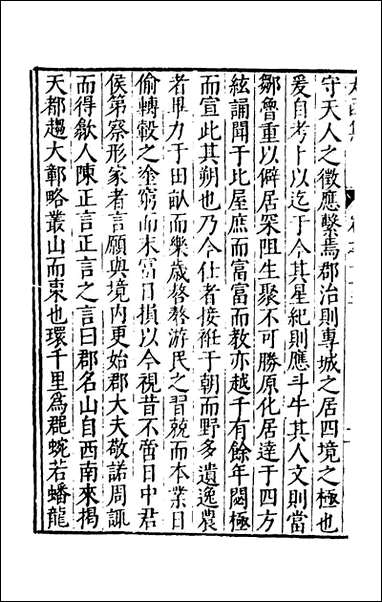 守天人之徵應繫焉郡治則專城之居四境之極也
爰自考卜以迄于今其星紀則應斗牛其人文則當
鄒魯重以僻居深阻生聚不可勝原化居達于四方
絃誦聞于比屋庶而富富而教亦越千有餘年閎極
而宣此其朔也乃今仕者接袵于朝而野多遺逸農
者畢力于田畝而樂歳格騖游民之習競而本業日
偷轉轂之塗窮而末富日損以今視昔不啻日中君
侯第察形家者言願與境內更始郡大夫敬諾周諏
而得歙人陳正言正言之言曰郡名山自西南來揭
天都趨大鄣略叢山而東也環千里爲郡蜿若蟠龍